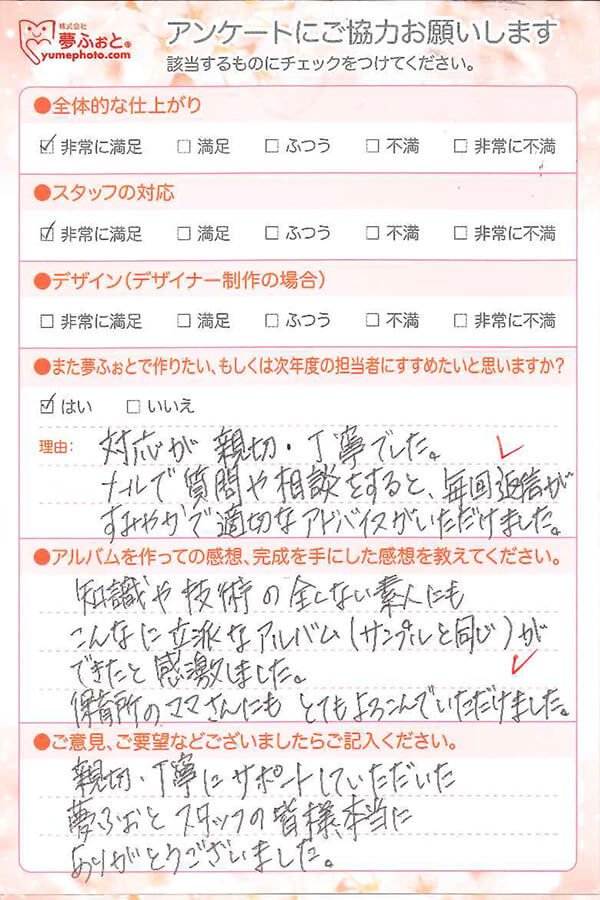 株式会社
夢ふぉと®
yumephoto.com
アンケートにご協力お願いします
該当するものにチェックをつけてください。
●全体的な仕上がり
☑ 非常に満足 □ 満足 □ ふつう □ 不満 □ 非常に不満
●スタッフの対応
☑ 非常に満足 □ 満足 □ ふつう □ 不満 □ 非常に不満
●デザイン(デザイナー制作の場合)
□ 非常に満足 □ 満足 □ ふつう □ 不満 □ 非常に不満
●また夢ふぉとで作りたい、もしくは次年度の担当者にすすめたいと思いますか?
☑ はい □ いいえ
理由: 対応が親切・丁寧でした。
メールで質問や相談をすると、毎回返信が
すみやかで適切なアドバイスがいただけました。
●アルバムを作っての感想、完成を手にした感想を教えてください。
知識や技術の全くない素人にも
こんなに立派なアルバム(サンプルと同じ)が
できたと感激しました。
保育所のママさんにもとてもよろこんでいただけました。
●ご意見、ご要望などございましたらご記入ください。
親切・丁寧にサポートしていただいた
夢ふぉとスタッフの皆様、本当に
ありがとうございました。